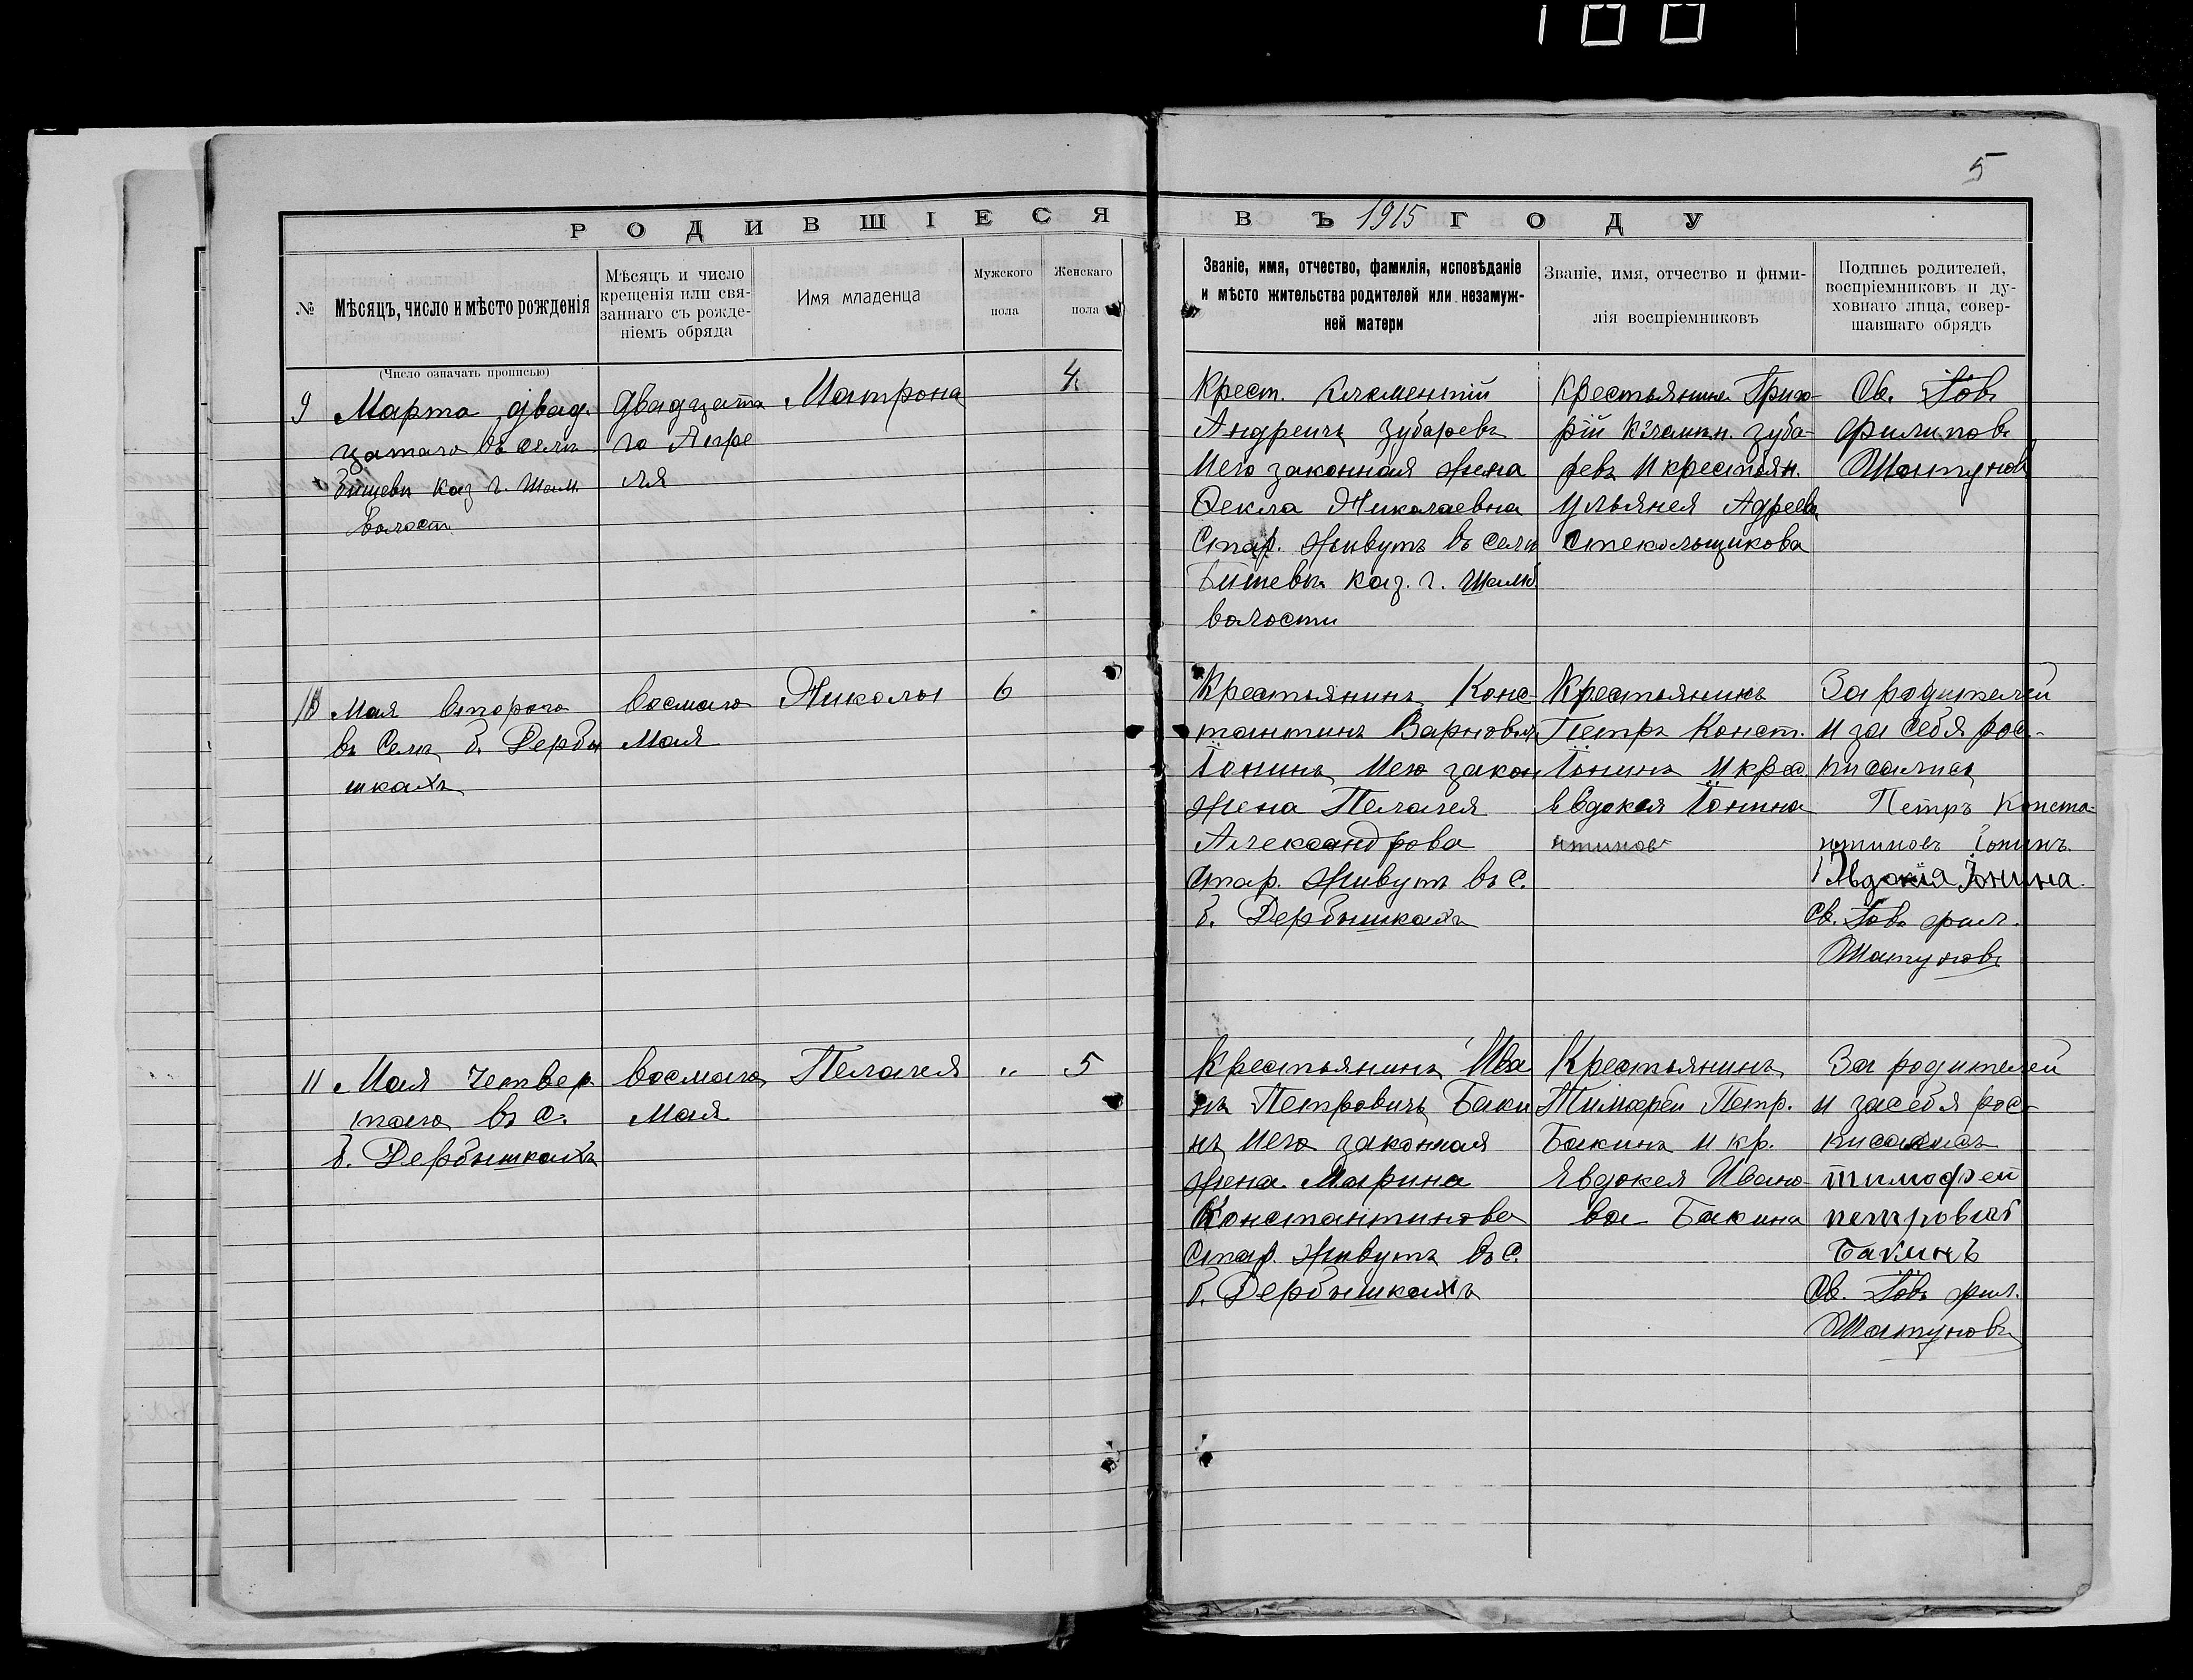 5
РОДИВШІЕСЯ ВЪ 1915 ГОДУ
№
Мѣсяцъ, число и мѣсто рожденія
Мѣсяцъ и число
крещенія или свя-
заннаго съ рожде-
ніемъ обряда
Имя младенца
Мужского
пола
Женскаго
пола
Званіе, имя, отчество, фамилія, исповѣданіе
и мѣсто жительства родителей или незамуж-
ней матери
Званіе, имя, отчество и фими-
лія воспріемниковъ
Подпись родителей,
воспріемниковъ и ду-
ховнаго лица, совер-
шавшаго обрядъ
(Число означать прописью)
9
Марта двад
цатаго въ селѣ
Бишевѣ каз г. Шам.
волост.
двадцата
го Апре
ля
Матрона
4
Крест. Клементій
Андреичъ Зубаревъ
Иего законная жена
Фекла Николаевна
Стар. живутъ въ селѣ
Бишевѣ каз. г.
волости
Крестьянинъ Григо-
рій Зуба-
ревъ И крестьян.
Ульянея Адреева
Стекольщикова
Св. Іовъ
Филиповъ
Шатуновъ
10
Мая втораго
въ Селѣ б. Дербы
шкахъ
восмаго
Мая
Николы
6
Крестьянинъ Конс-
тантинъ
Іонинъ Иего закон
жена Пелагея
Александрова
Стар. живутъ въ с.
б. Дербышкахъ
Крестьянинъ
Петръ Конст.
Іонинъ И крес.
Евдокея Іонина
нтинов
За родителей
и за себя рос-
писались
Петръ Конста-
нтиновъ Іонинъ.
Івдокія Іонина.
Св. Іовъ фил.
Шатуновъ
11
Мая Четвер
таго въ с.
б. Дербышкахъ
восмаго
Мая
Пелагея
"
5
Крестьянинъ Ива
нъ Петровичъ Баки
нъ Иего законная
жена Марина
Константинова
Стар. живутъ въ с.
б. Дербышкахъ
Крестьянинъ
Тимофей Петр.
Бакинъ и кр.
Евдокея Ивано
ва Бакина
За родителей
и засебя рос-
писалисъ
тимофей
петровичъ
Бакинъ
Св. Іовъ фил.
Шатуновъ